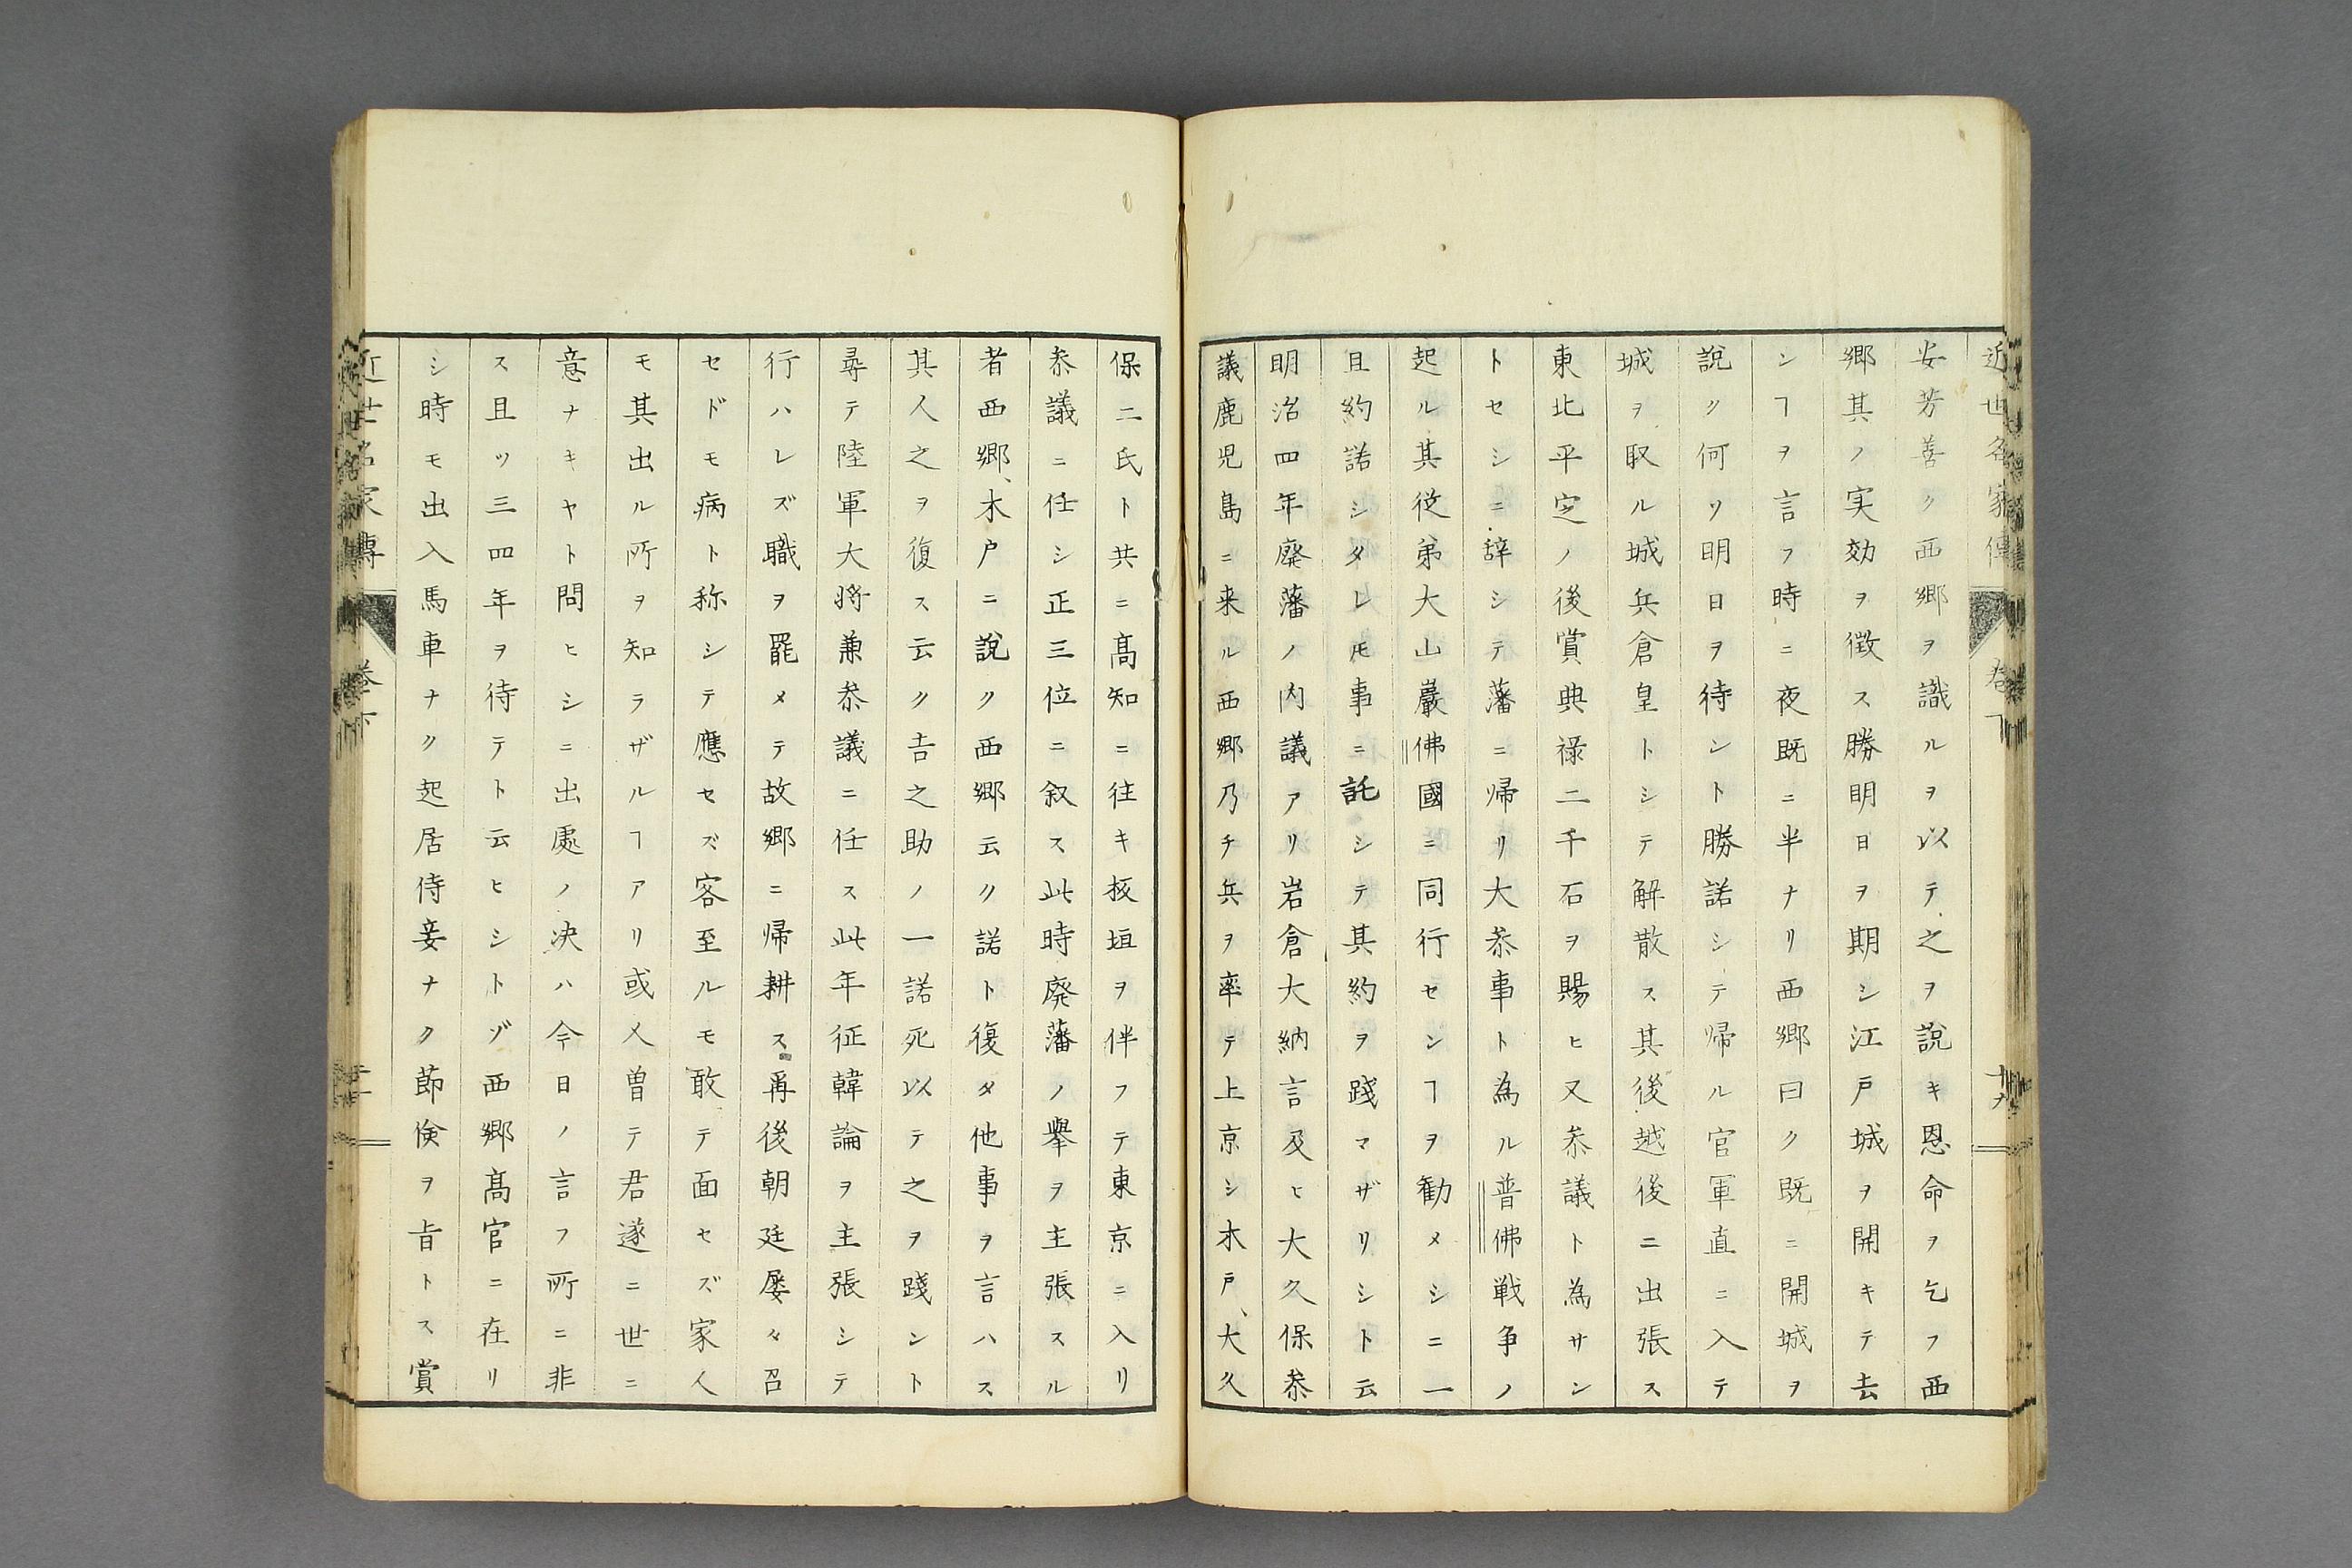 近世名家傳 卷下
安芳善ク西郷ヲ識ルヲ以テ、之ヲ說キ恩命ヲ乞フ西
郷其ノ実効ヲ徴ス勝明日ヲ期シ江戸城ヲ開キテ去
ンヿヲ言フ時ニ夜既ニ半ナリ西郷曰ク既ニ開城ヲ
說ク何ソ明日ヲ待ント勝諾シテ帰ル官軍直ニ入テ
城ヲ取ル城兵倉皇トシテ解散ス其後越後ニ出張ス
東北平定ノ後賞典禄二千石ヲ賜ヒ又叅議ト為サン
トセシニ辞シテ藩ニ帰リ大叅事ト為ル普佛戦争ノ
起ル其従弟大山巖佛國ニ同行センヿヲ勧メシニ一
且約諾シタレ𪜈事ニ託シテ其約ヲ踐マザリシト云
明治四年廃藩ノ内議アリ岩倉大納言及ヒ大久保叅
議鹿児島ニ来ル西郷乃チ兵ヲ率テ上京シ木戸、大久
保二氏ト共ニ髙知ニ往キ板垣ヲ伴フテ東京ニ入リ
叅議ニ任シ正三位ニ叙ス此時廃藩ノ擧ヲ主張スル
者西郷、木戸ニ說ク西郷云ク諾ト復タ他事ヲ言ハス
其人之ヲ復ス云ク吉之助ノ一諾死以テ之ヲ踐ント
尋テ陸軍大将兼叅議ニ任ス此年征韓論ヲ主張シテ
行ハレズ職ヲ罷メテ故郷ニ帰耕ス再後朝廷屡々召
セドモ病ト称シテ應セズ客至ルモ敢テ面セズ家人
モ其出ル所ヲ知ラザルヿアリ或人曽テ君遂ニ世ニ
意ナキヤト問ヒシニ出處ノ决ハ今日ノ言フ所ニ非
ス且ツ三四年ヲ待テト云ヒシトゾ西郷髙官ニ在リ
シ時モ出入馬車ナク起居侍妾ナク節倹ヲ旨トス賞
近世名家傳 卷下